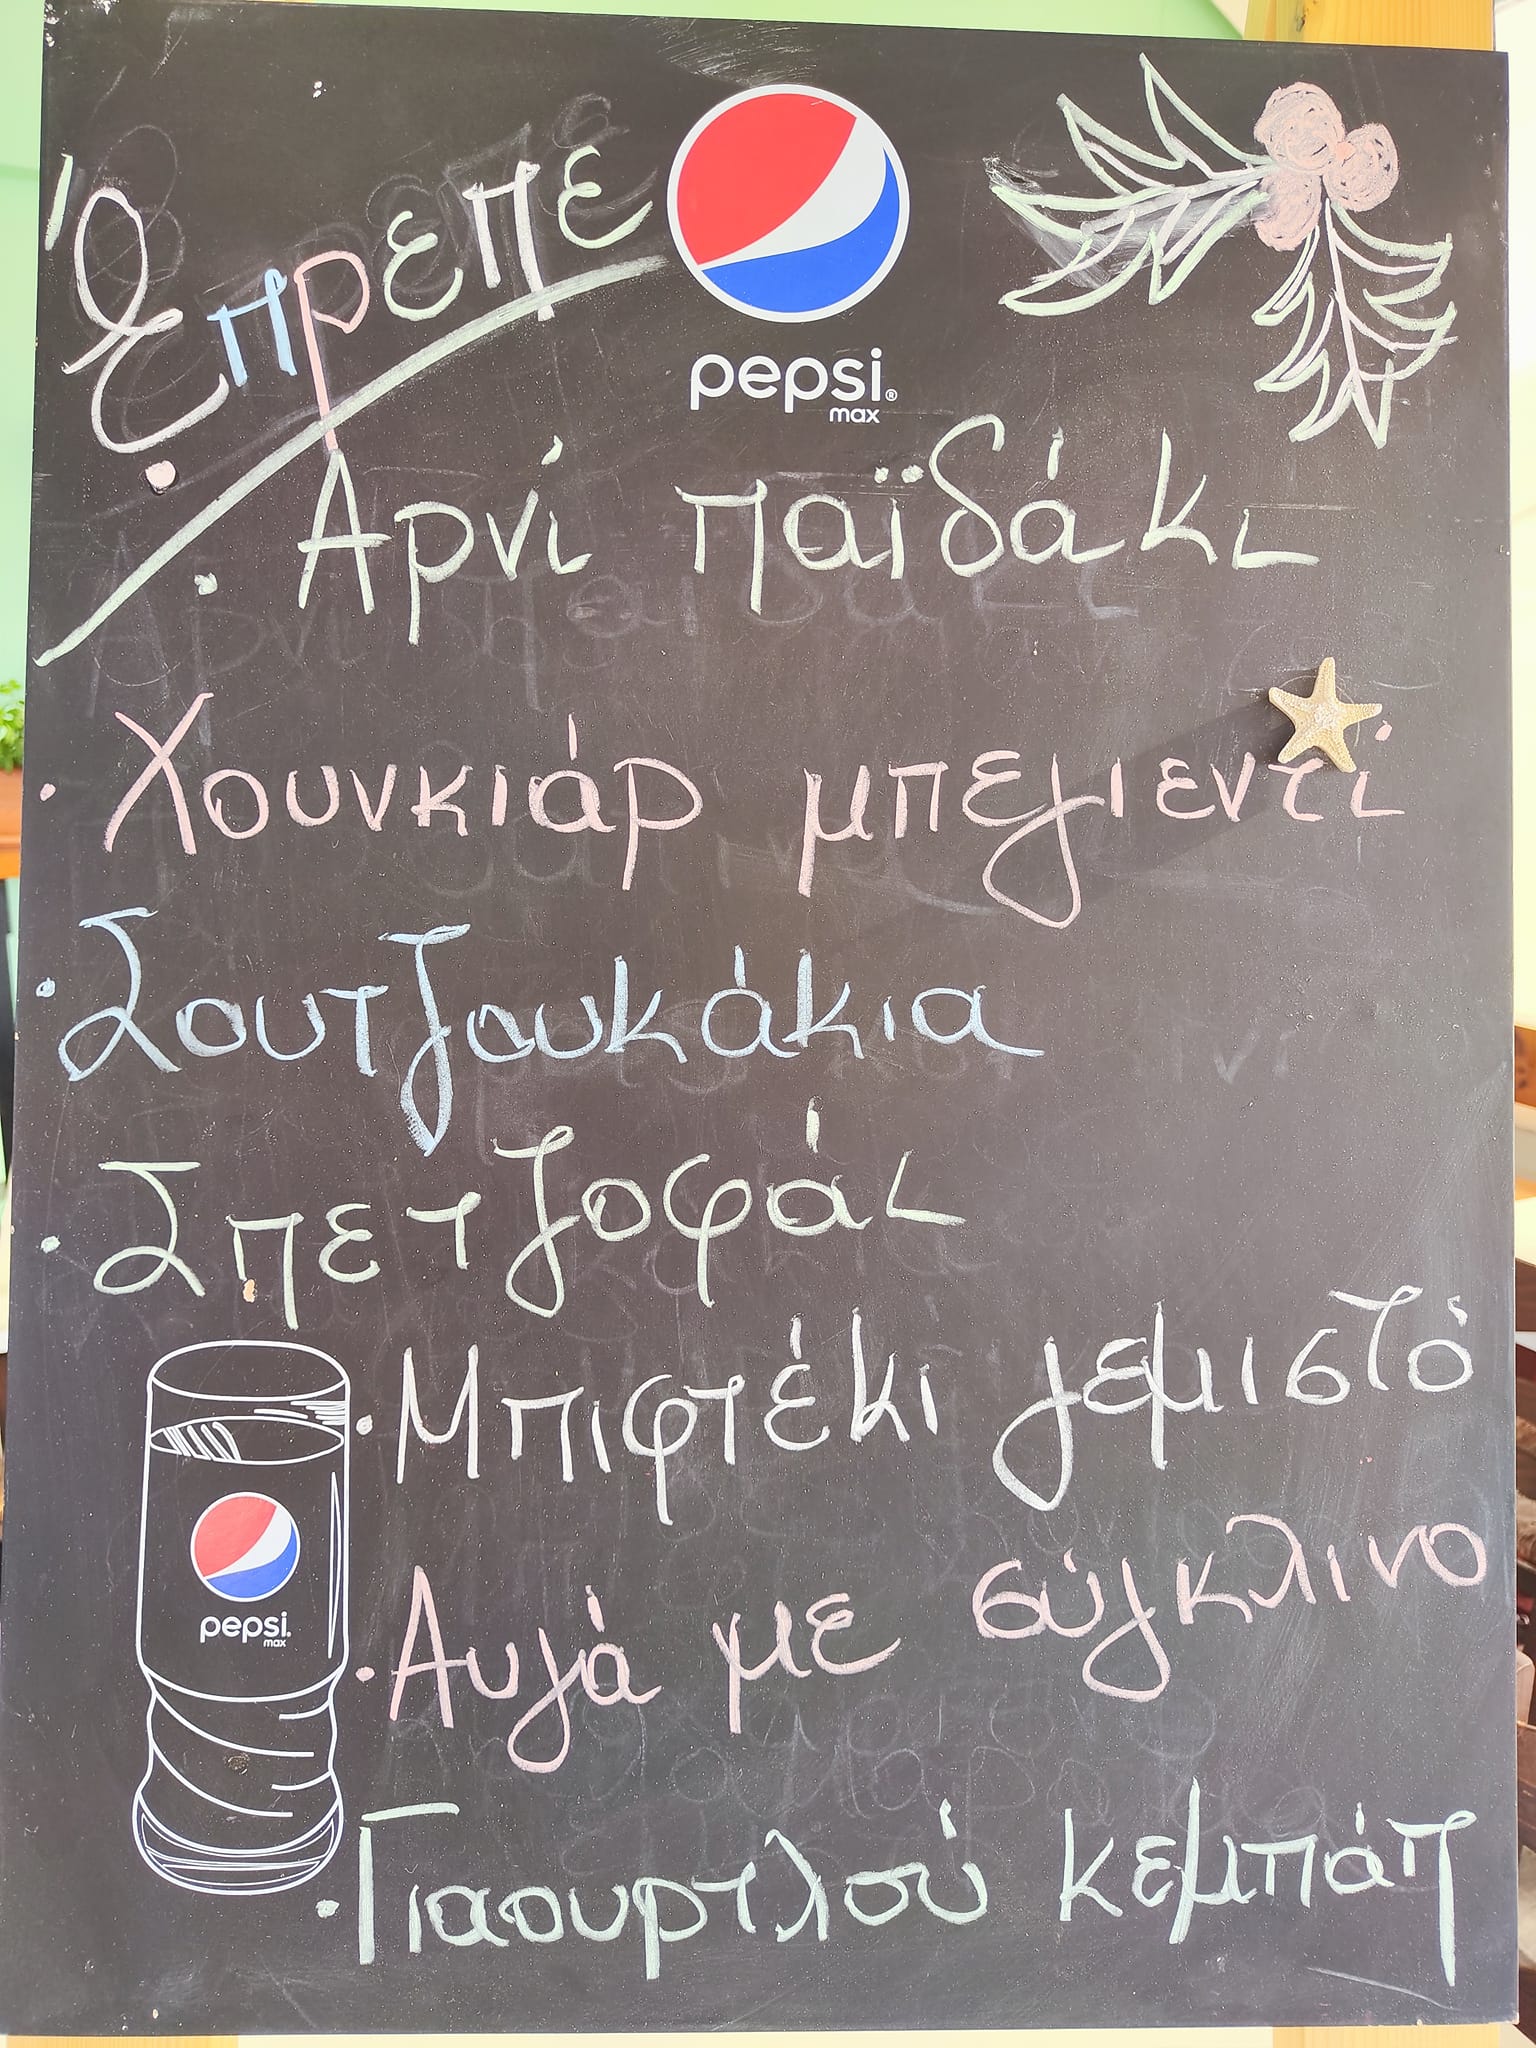 Έπρεπε
pepsi®
max
· Αρνί παϊδάκι
· Χουνκιάρ μπεγιεντί
· Σουτζουκάκια
· Σπετζοφάι
· Μπιφτέκι γεμιστό
pepsi
max
· Αυγά με σύγκλινο
· Γιαουρτλού κεμπάπ